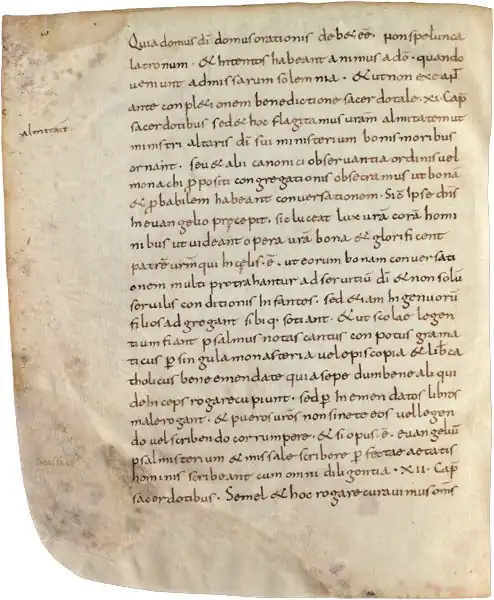 Quia domus dī domus orationis debet eē · non spelunca
latronum · & intentos habeant animus ad ō · quando
veniunt ad missarum solemnia · & ut non exeant
ante conpl&ionem benedictione sacerdotale · XI · Cap̄
almitati
sacerdotibus sed & hoc flagitamus vram almitatem ut
ministri altaris dī sui ministerium bonis moribus
ornant · seu & alii canonici observantia ordinis vel
monachi p̄positi congregationis obsecramus ut bona
& p̄babilem habeant conversationem · Sic̄ ipse dn̄s
in evangelio precepit · sic luceat lux vrā corā homi
nibus ut videant opera vrā bona & glorificent
patrē vrm̄ qui in celis · ē · ut eorum bonam conversati
onem multi protrahantur ad servitiū dī & non solū
servilis conditionis infantes · sed &iam ingenuorū
filios adgregant sibiq · sotiant · & ut scolae legen
tium fiant psalmus notas cantus conpotus grama
ticus p̄ singula monasteria vel episcopia & lib̄ ca
tholicus bene emendate quia sepe dum bene aliqui
d̄ in ceps rogare cupiunt · sed p̄ inemendatos libros
male rogant · & pueros vrōs non sinete eos vel legen
do vel scribendo corrumpere · & si opus · ē · evangeliū
psalmisterium & missale scribere p̄fectae aetatis
hominis scribeant cum omni diligentia · XII · Cap̄
sacerdotibus · Semel & hoc rogare curavimus om̄s